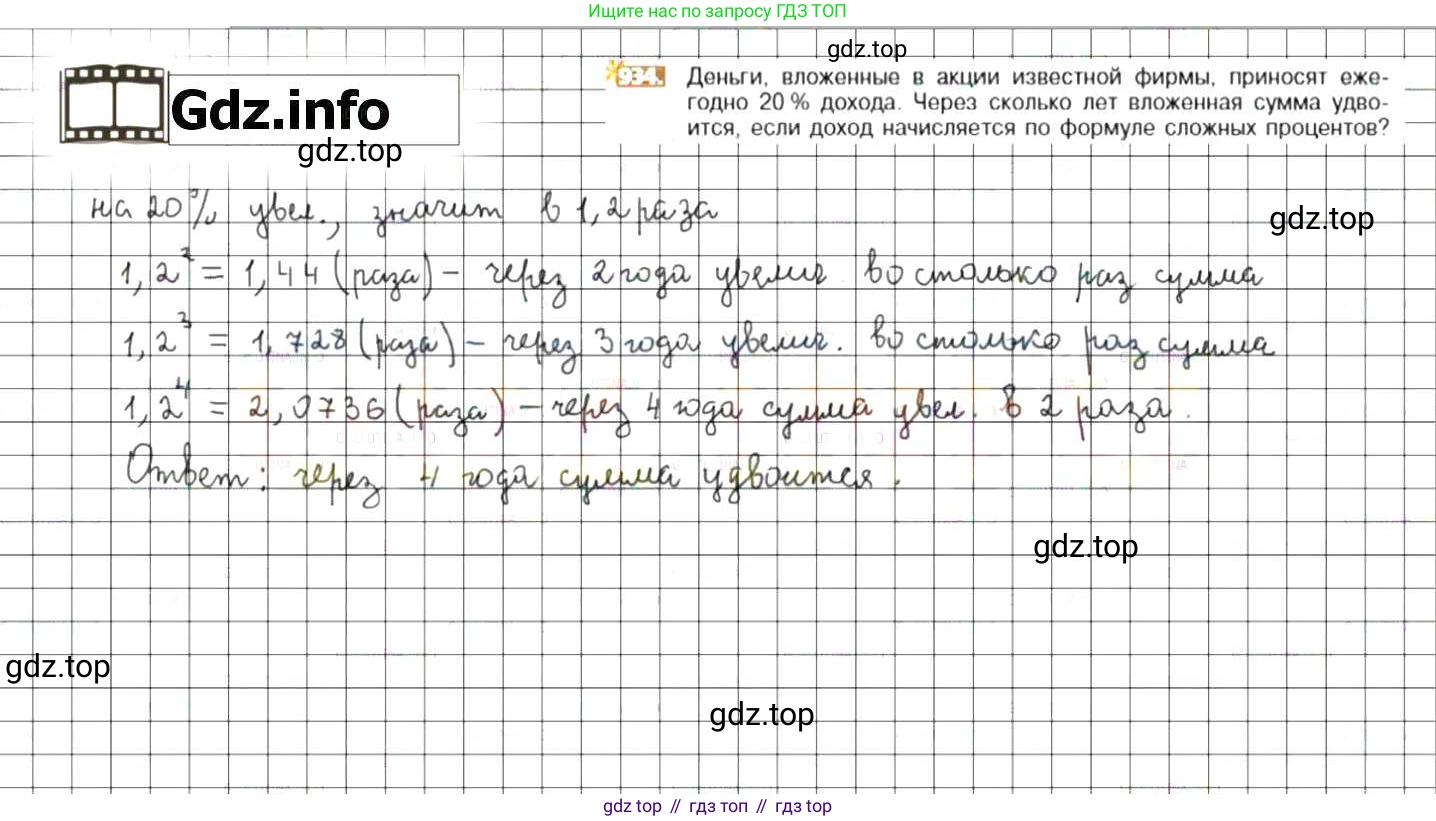 Ищите нас по запросу ГДЗ ТОП
gdz.top
934. Деньги, вложенные в акции известной фирмы, приносят еже-
годно 20 % дохода. Через сколько лет вложенная сумма удво-
ится, если доход начисляется по формуле сложных процентов?
Gdz.info
gdz.top
на 20% увел., значит в 1,2 раза
gdz.top
1,2² = 1,44 (раза) – через 2 года увелич во столько раз сумма
1,2³ = 1,728 (раза) – через 3 года увелич. во столько раз сумма
1,2⁴ = 2,0736 (раза) – через 4 года сумма увел. в 2 раза.
Ответ: через 4 года сумма удвоится.
gdz.top
gdz.top
gdz.top
gdz top // гдз топ // гдз top